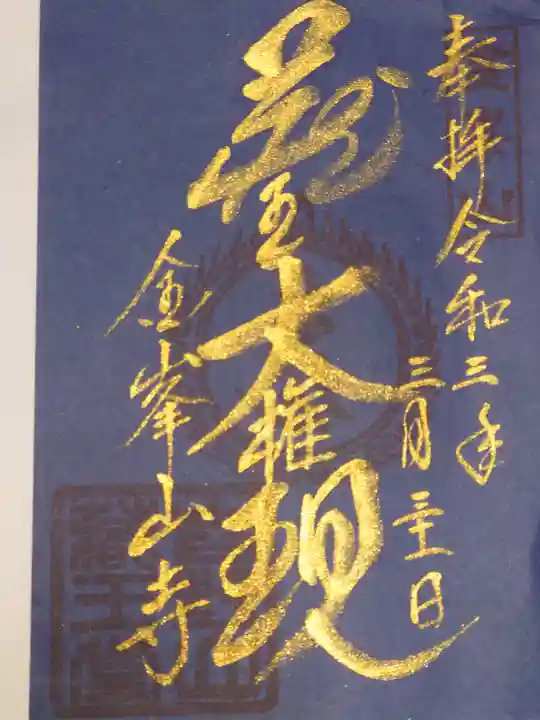 奉拝 令和三年
三月二十一日
蔵王大権現
金峯山寺